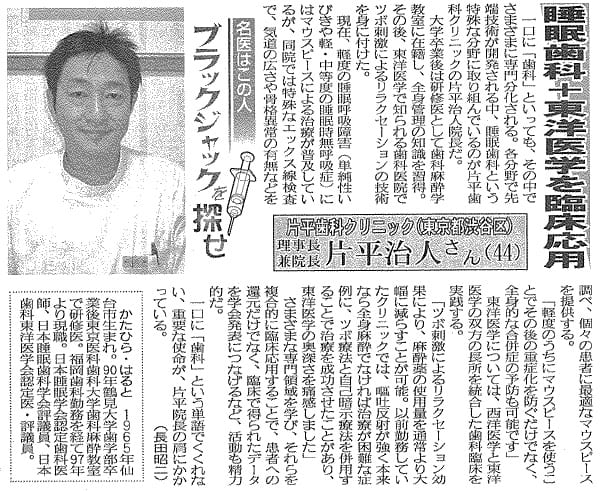 睡眠歯科＋東洋医学を臨床応用
名医はこの人
ブラックジャックを探せ
片平歯科クリニック(東京都渋谷区)
理事長
兼院長
片平治人さん(44)
一口に「歯科」といっても、その中で
さまざまに専門分化される。各分野で先
端技術が開発される中、睡眠歯科という
特殊な分野に取り組んでいるのが片平歯
科クリニックの片平治人院長だ。
大学卒業後は研修医として歯科麻酔学
教室に在籍し、全身管理の知識を習得。
その後、東洋医学で知られる歯科医院で
ツボ刺激によるリラクセーションの技術
を身に付けた。
現在、軽度の睡眠呼吸障害（単純性い
びきや軽・中等度の睡眠時無呼吸症）に
はマウスピースによる治療が普及してい
るが、同院では特殊なエックス線検査
で、気道の広さや骨格異常の有無などを
調べ、個々の患者に最適なマウスピース
を提供する。
「軽度のうちにマウスピースを使うこ
とでその後の重症化を防ぐだけでなく、
全身的な合併症の予防も可能です」
東洋医学については、西洋医学と東洋
医学の双方の長所を統合した歯科臨床を
実践する。
「ツボ刺激によるリラクセーション効
果により、麻酔薬の使用量を通常より大
幅に減らすことが可能。以前勤務してい
たクリニックでは、嘔吐反射が強く本来
なら全身麻酔でなければ治療が困難な症
例に、ツボ療法と自己暗示療法を併用す
ることで治療を成功させたことがあり、
東洋医学の奥深さを痛感しました」
さまざまな専門領域を学び、それらを
複合的に臨床応用することで、患者への
還元だけでなく、臨床で得られたデータ
を学会発表につなげるなど、活動も精力
的だ。
一口に「歯科」という単語でくくれな
い、重要な使命が、片平院長の肩にかか
っている。
（長田昭二）
かたひら・はると　1965年仙
台市生まれ。90年鶴見大学歯学部卒
業後東京医科歯科大学歯科麻酔教室
で研修医。福岡歯科勤務を経て97年
より現職。日本睡眠学会認定歯科医
師、日本睡眠歯科学会評議員、日本
歯科東洋医学会認定医・評議員。